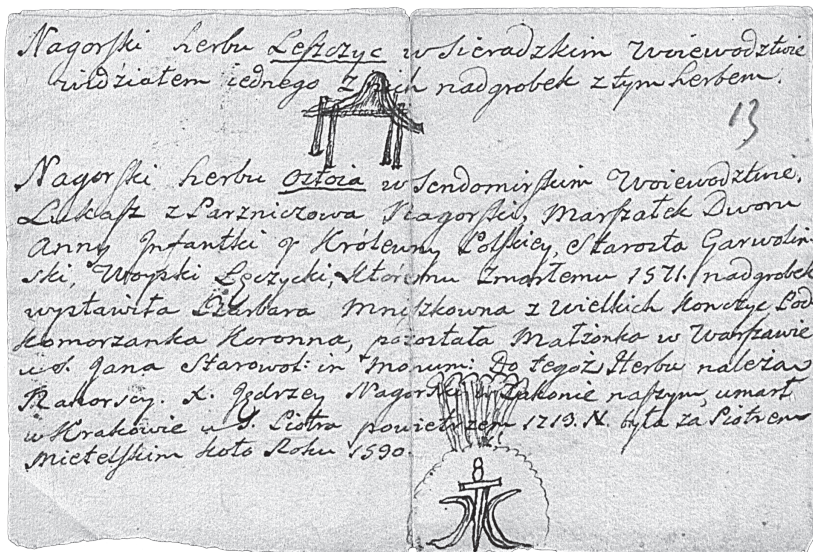 Nagorski herbu Leszczyc w Sieradzkim Woiewodztwie
widziałem iednego z nich nadgrobek z tym herbem.
13
Nagorski herbu Ostoia w Sendomirskim Woiewodztwie.
Lukasz z Parzniczowa Nagorski, Marszałek Dworu
Anny Infantki y Królewny Polskiey, Starosta Garwoliń-
ski, Woyski Łęczycki, ktoremu zmarłemu 1571. nadgrobek
wystawiła Barbara Mniszkowna z wielkich Konczyc Pod
komorzanka Koronna, pozostała Małżonka w Warszawie
u S. Jana Starowol: in Monum: Do tegoż Herbu należa
X. Jędrzey Nagorski w Zakonie naszym, umarł
w Krakowie u S. Piotra powietrzem 1713. N. była za Piotrem
Mietelskim koło Roku 1590.